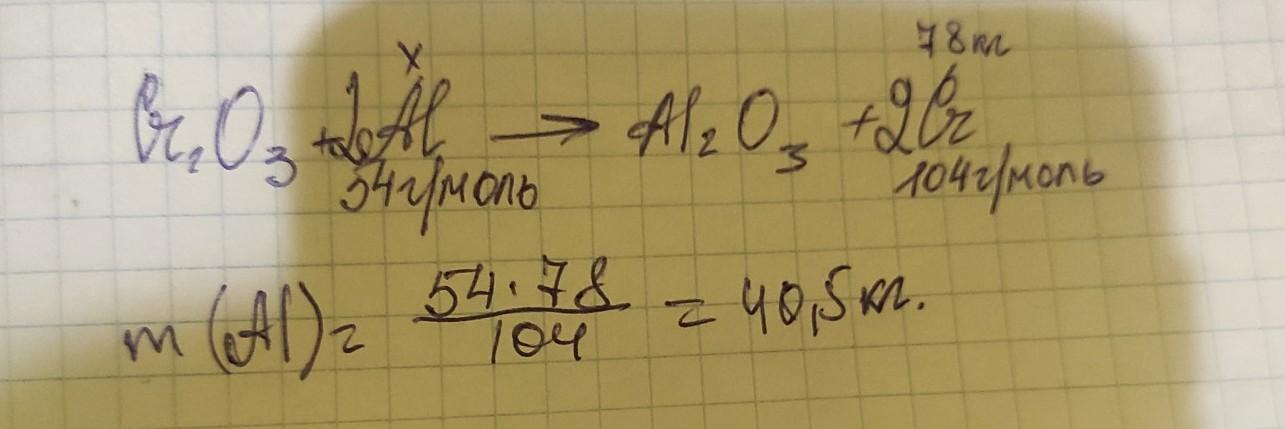 x 78кг
Cr₂O₃ + 2Al → Al₂O₃ + 2Cr
54г/моль 104г/моль
m (Al) = 54·78 / 104 = 40,5 кг.